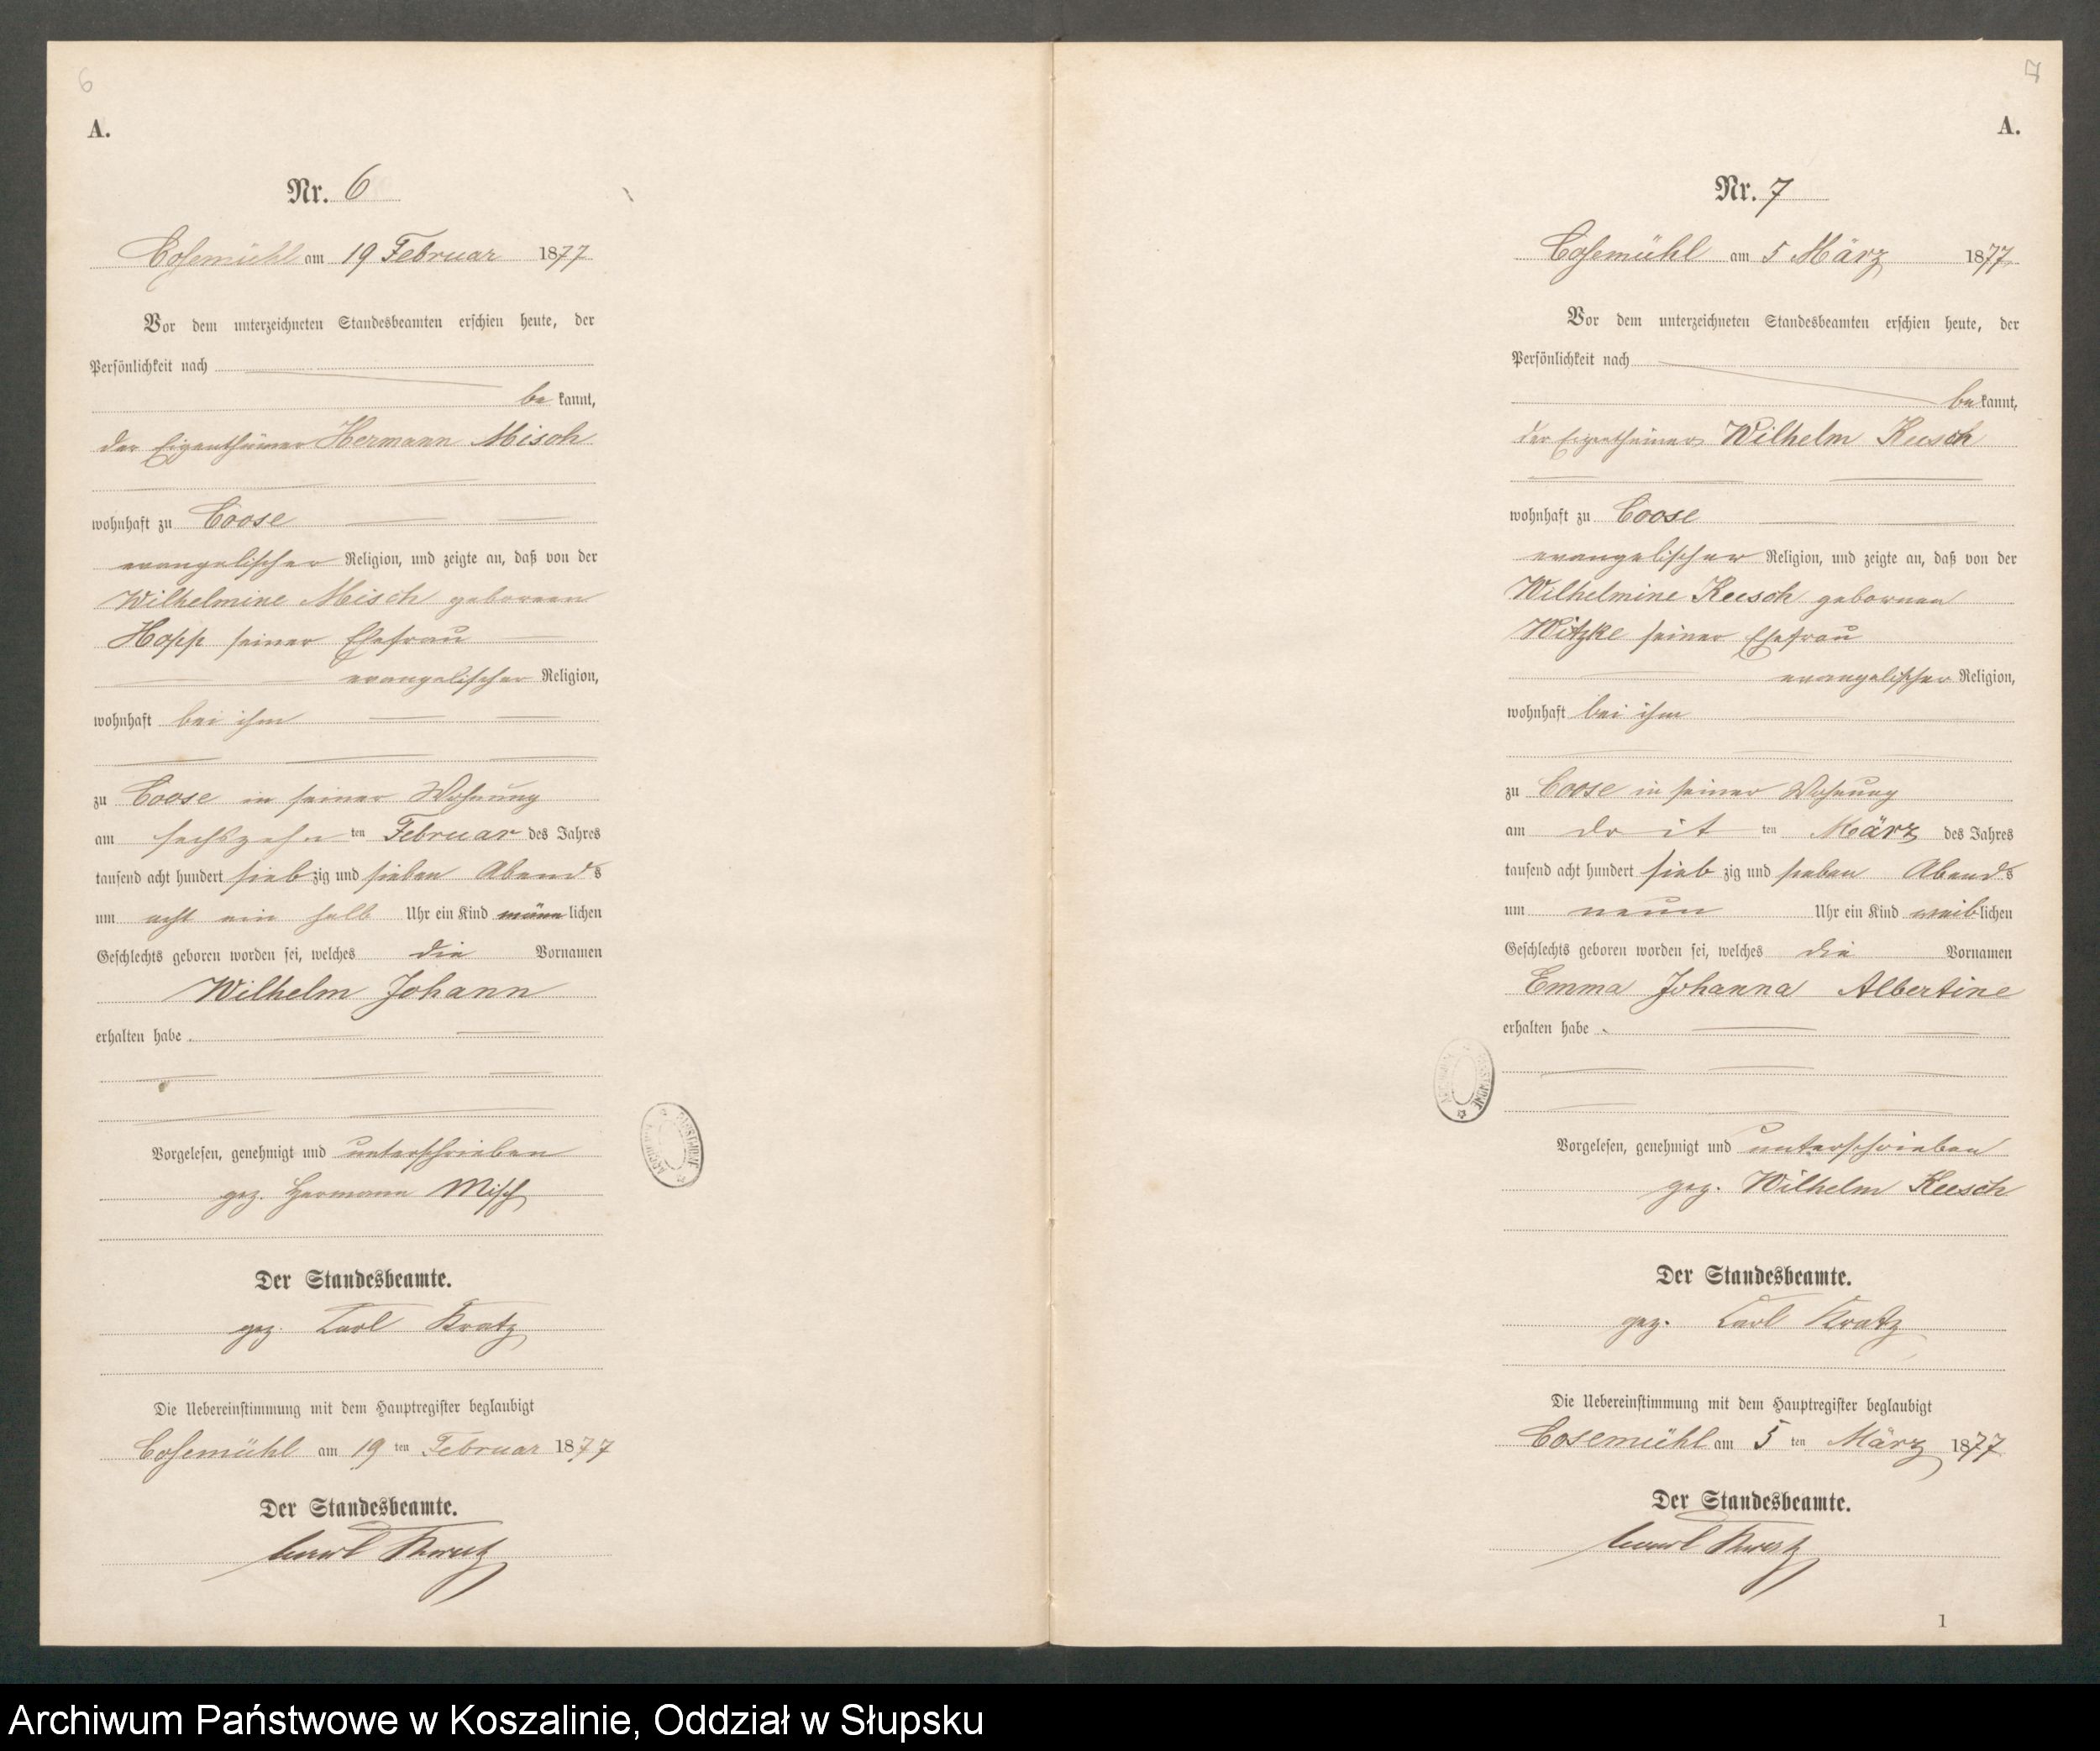 6
A.
Nr. 6
Cosemühl am 19 Februar 1877
Vor dem unterzeichneten Standesbeamten erschien heute, der
Persönlichkeit nach
be kannt,
der Eigenthümer Hermann Misch
wohnhaft zu Coose
evangelischer Religion, und zeigte an, daß von der
Wilhelmine Misch geborenen
Hopp seiner Ehefrau
evangelischer Religion,
wohnhaft bei ihm
zu Coose in seiner Wohnung
am sechszehn ten Februar des Jahres
tausend acht hundert sieb zig und sieben Abends
um acht ein halb Uhr ein Kind männ lichen
Geschlechts geboren worden sei, welches die Vornamen
Wilhelm Johann
erhalten habe
Vorgelesen, genehmigt und unterschrieben
gez. Hermann Misch
Der Standesbeamte.
gez. Carl Kratz
Die Uebereinstimmung mit dem Hauptregister beglaubigt
Cosemühl am 19 ten Februar 1877
Der Standesbeamte.
Carl Kratz
7
A.
Nr. 7
Cosemühl am 5 März 1877
Vor dem unterzeichneten Standesbeamten erschien heute, der
Persönlichkeit nach
be kannt,
der Eigenthümer Wilhelm Kusch
wohnhaft zu Coose
evangelischer Religion, und zeigte an, daß von der
Wilhelmine Kusch gebornen
Witzke seiner Ehefrau
evangelischer Religion,
wohnhaft bei ihm
zu Coose in seiner Wohnung
am drit ten März des Jahres
tausend acht hundert sieb zig und sieben Abends
um neun Uhr ein Kind weib lichen
Geschlechts geboren worden sei, welches die Vornamen
Emma Johanna Albertine
erhalten habe
Vorgelesen, genehmigt und unterschrieben
gez. Wilhelm Kusch
Der Standesbeamte.
gez. Carl Kratz
Die Uebereinstimmung mit dem Hauptregister beglaubigt
Cosemühl am 5 ten März 1877
Der Standesbeamte.
Carl Kratz
1
Archiwum Państwowe w Koszalinie, Oddział w Słupsku